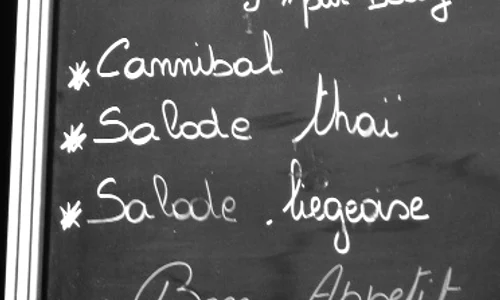 * Cannibal
* Salade thaï
* Salade liégeoise
Bon Appetit